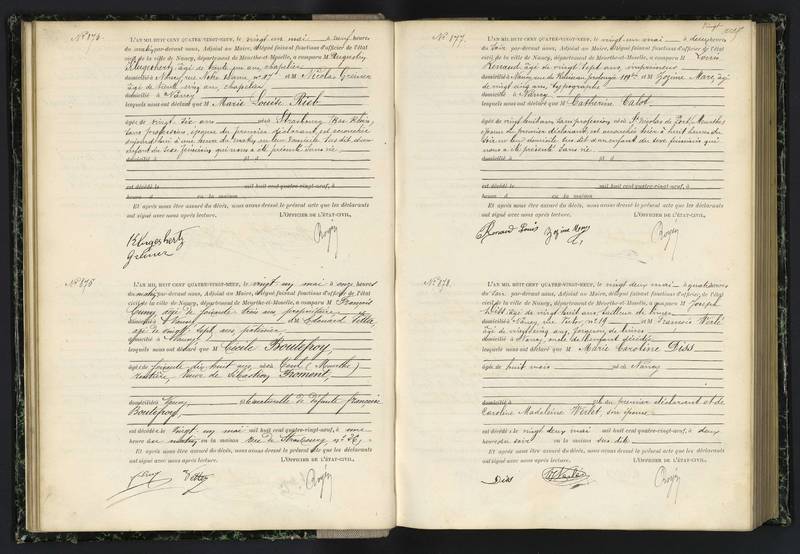 Nº 875.
L'AN MIL HUIT CENT QUATRE-VINGT-NEUF, le vingt un mai à neuf heures
du matin par-devant nous, Adjoint au Maire, délégué faisant fonctions d'officier de l'état
civil de la ville de Nancy, département de Meurthe-et-Moselle, a comparu M
Klugeshertz, âgé de trente un ans, chapelier
domicilié à Nancy, rue Notre Dame nº 37 et M Nicolas Greiner
âgé de trente cinq ans, chapelier
domicilié à Nancy
lesquels nous ont déclaré que M Marie Louise Rieb
âgée de vingt six ans née à Strasbourg (Bas-Rhin),
sans profession, épouse du premier déclarant, est accouchée
aujourd'hui à une heure du matin en leur domicile sus dit d'un
enfant du sexe féminin qui nous a été présenté sans vie
domicilié à et à
est décédé le mil huit cent quatre-vingt-neuf, à
heure d en la maison
Et après nous être assuré du décès, nous avons dressé le présent acte que les déclarants
ont signé avec nous après lecture. L'OFFICIER DE L'ÉTAT-CIVIL,
Klugeshertz
Greiner
Nº 876
L'AN MIL HUIT CENT QUATRE-VINGT-NEUF, le vingt un mai à onze heures
du matin par-devant nous, Adjoint au Maire, délégué faisant fonctions d'officier de l'état
civil de la ville de Nancy, département de Meurthe-et-Moselle, a comparu M François
âgé de soixante trois ans, propriétaire
domicilié à Nancy et M Edouard
âgé de vingt sept ans
domicilié à Nancy
lesquels nous ont déclaré que M Cécile Boutefroy,
âgée de soixante dix huit ans née à Toul (Meurthe)
rentière, veuve de Sébastien Fromont,
domiciliée à Nancy et naturelle de défunte Françoise
Boutefroy,
est décédée le vingt un mai mil huit cent quatre-vingt-neuf, à une
heure du matin en la maison rue de Strasbourg, nº
Et après nous être assuré du décès, nous avons dressé le présent acte que les déclarants
ont signé avec nous après lecture. L'OFFICIER DE L'ÉTAT-CIVIL,
Nº 877.
L'AN MIL HUIT CENT QUATRE-VINGT-NEUF, le vingt un mai à heures
du soir par-devant nous, Adjoint au Maire, délégué faisant fonctions d'officier de l'état
civil de la ville de Nancy, département de Meurthe-et-Moselle, a comparu M Louis
Renard, âgé de vingt sept ans
domicilié à Nancy, rue et M Gozime Marc, âgé
de vingt cinq ans, typographe
domicilié à Nancy
lesquels nous ont déclaré que M Catherine Calot
âgée de vingt huit ans, sans profession née à St Nicolas de Port, (Meurthe)
épouse du premier déclarant, est accouchée hier à huit heures du
soir en leur domicile sus dit d'un enfant du sexe féminin qui
nous a été présenté sans vie
domicilié à et à
est décédé le mil huit cent quatre-vingt-neuf, à
heure d en la maison
Et après nous être assuré du décès, nous avons dressé le présent acte que les déclarants
ont signé avec nous après lecture. L'OFFICIER DE L'ÉTAT-CIVIL,
Renard Louis
Nº 878.
L'AN MIL HUIT CENT QUATRE-VINGT-NEUF, le vingt deux mai à quatre heures
du soir par-devant nous, Adjoint au Maire, délégué faisant fonctions d'officier de l'état
civil de la ville de Nancy, département de Meurthe-et-Moselle, a comparu M Joseph
Diss, âgé de vingt huit ans, tailleur de limes
domicilié à Nancy, rue et M François Werlé
âgé de vingt cinq ans, forgeron de limes
domicilié à Nancy, oncle de l'enfant décédée
lesquels nous ont déclaré que M Marie Caroline Diss
âgée de huit mois née à Nancy
domicilié à et du premier déclarant et de
Caroline Madeleine Werlet, son épouse
est décédée le vingt deux mai mil huit cent quatre-vingt-neuf, à deux
heures du soir en la maison sus dite
Et après nous être assuré du décès, nous avons dressé le présent acte que les déclarants
ont signé avec nous après lecture. L'OFFICIER DE L'ÉTAT-CIVIL,
Diss